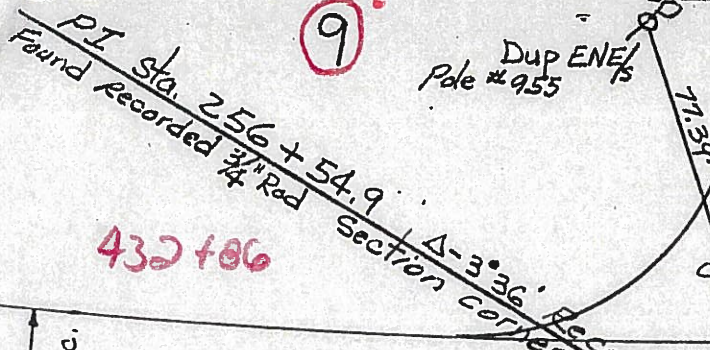 9
Dup ENE/s
Pole #955
77.34
PI Sta. 256 + 54.9 Δ-3°36' Rec
Found Recorded 3/4" Rod Section corner
432+86